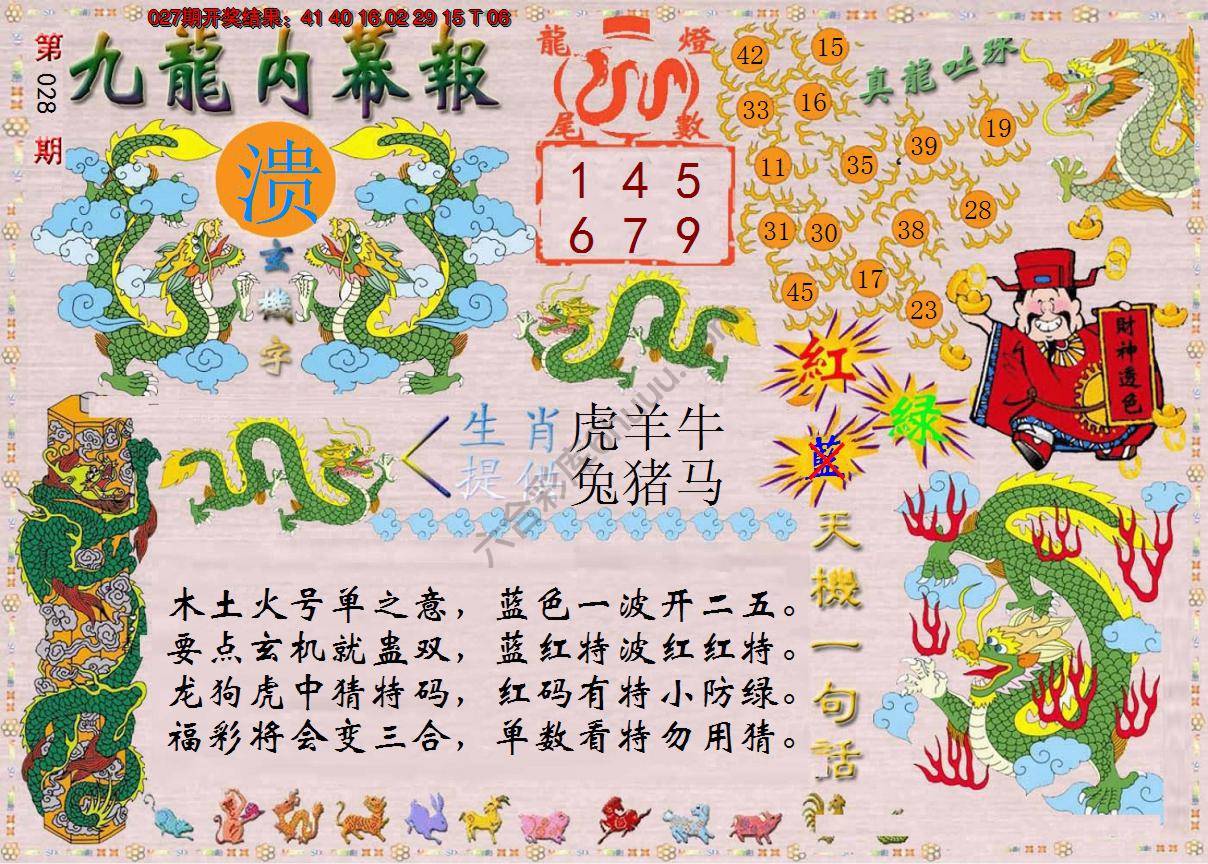 027期开奖结果：41 40 16 02 29 15 T 06
第028期
九龍内幕報
溃
玄機字
龍燈尾數
1 4 5
6 7 9
真龍吐珠
42 15
33 16
11 35 39 19
31 30 38 28
45 17 23
財神透色
紅
綠
藍
生肖
提供
虎羊牛
兔猪马
天機一句話
木土火号单之意，蓝色一波开二五。
要点玄机就蛊双，蓝红特波红红特。
龙狗虎中猜特码，红码有特小防绿。
福彩将会变三合，单数看特勿用猜。